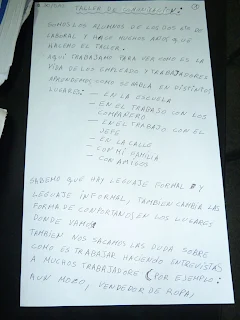 TALLER DE COMUNICACIÓN:
SOMOS LOS ALUMNOS DE LOS DOS AÑO DE
LABORAL Y HACE MUCHOS AÑOS QUE
HACEMO EL TALLER.
AQUÍ TRABAJAMO PARA VER COMO ES LA
VIDA DE LOS EMPLEADO Y TRABAJADORES
APRENDEMOS COMO SE HABLA EN DISTINTOS
LUGARES:
– EN LA ESCUELA
– EN EL TRABAJO CON LOS
COMPAÑERO
– EN EL TRABAJO CON EL
JEFE
– EN LA CALLE
– CON MI FAMILIA
– CON AMIGOS
SABEMO QUE HAY LENGUAJE FORMAL Y
LEGUAJE INFORMAL, TAMBIEN CAMBIAR LAS
FORMA DE COMPORTARNOS EN LOS LUGARES
DONDE VAMOS
TAMBIEN NOS SACAMOS LAS DUDA SOBRE
COMO ES TRABAJAR HACIENDO ENTREVISTAS
A MUCHOS TRABAJADORE (POR EJEMPLO:
A UN MOZO, VENDEDOR DE ROPA,